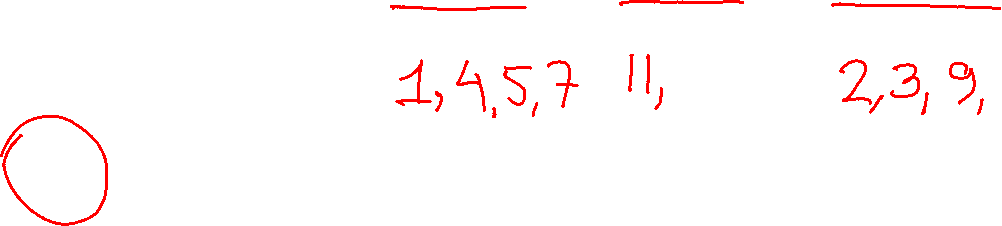 1,4,5,7 11, 2,3,9,